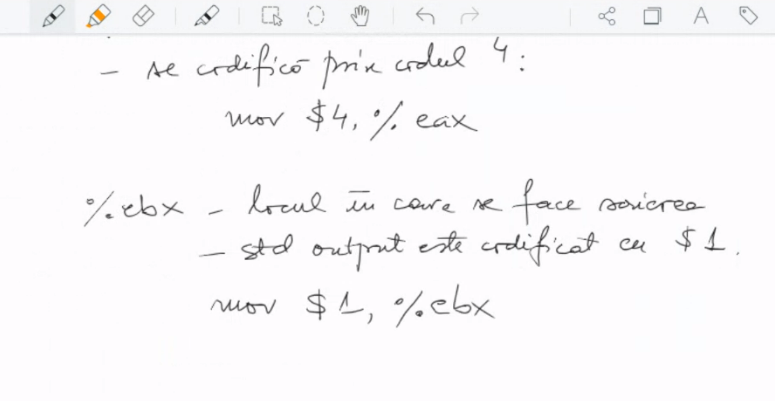 - se codifică prin codul 4:
mov $4, % eax
%ebx - locul în care se face scrierea
- std output este codificat cu $1.
mov $1, %ebx